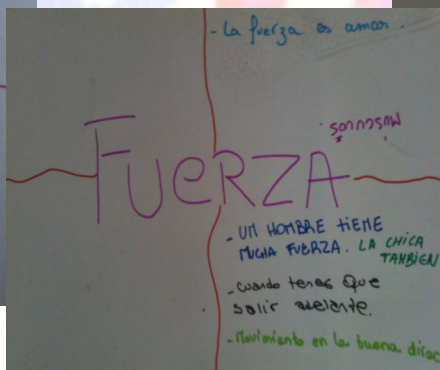 - La fuerza es amar.
MUSCULOS
FUERZA
- UN HOMBRE TIENE
MUCHA FUERZA. LA CHICA
TAMBIEN
- cuando tenes que
salir adelante.
- Movimiento en la buena direc